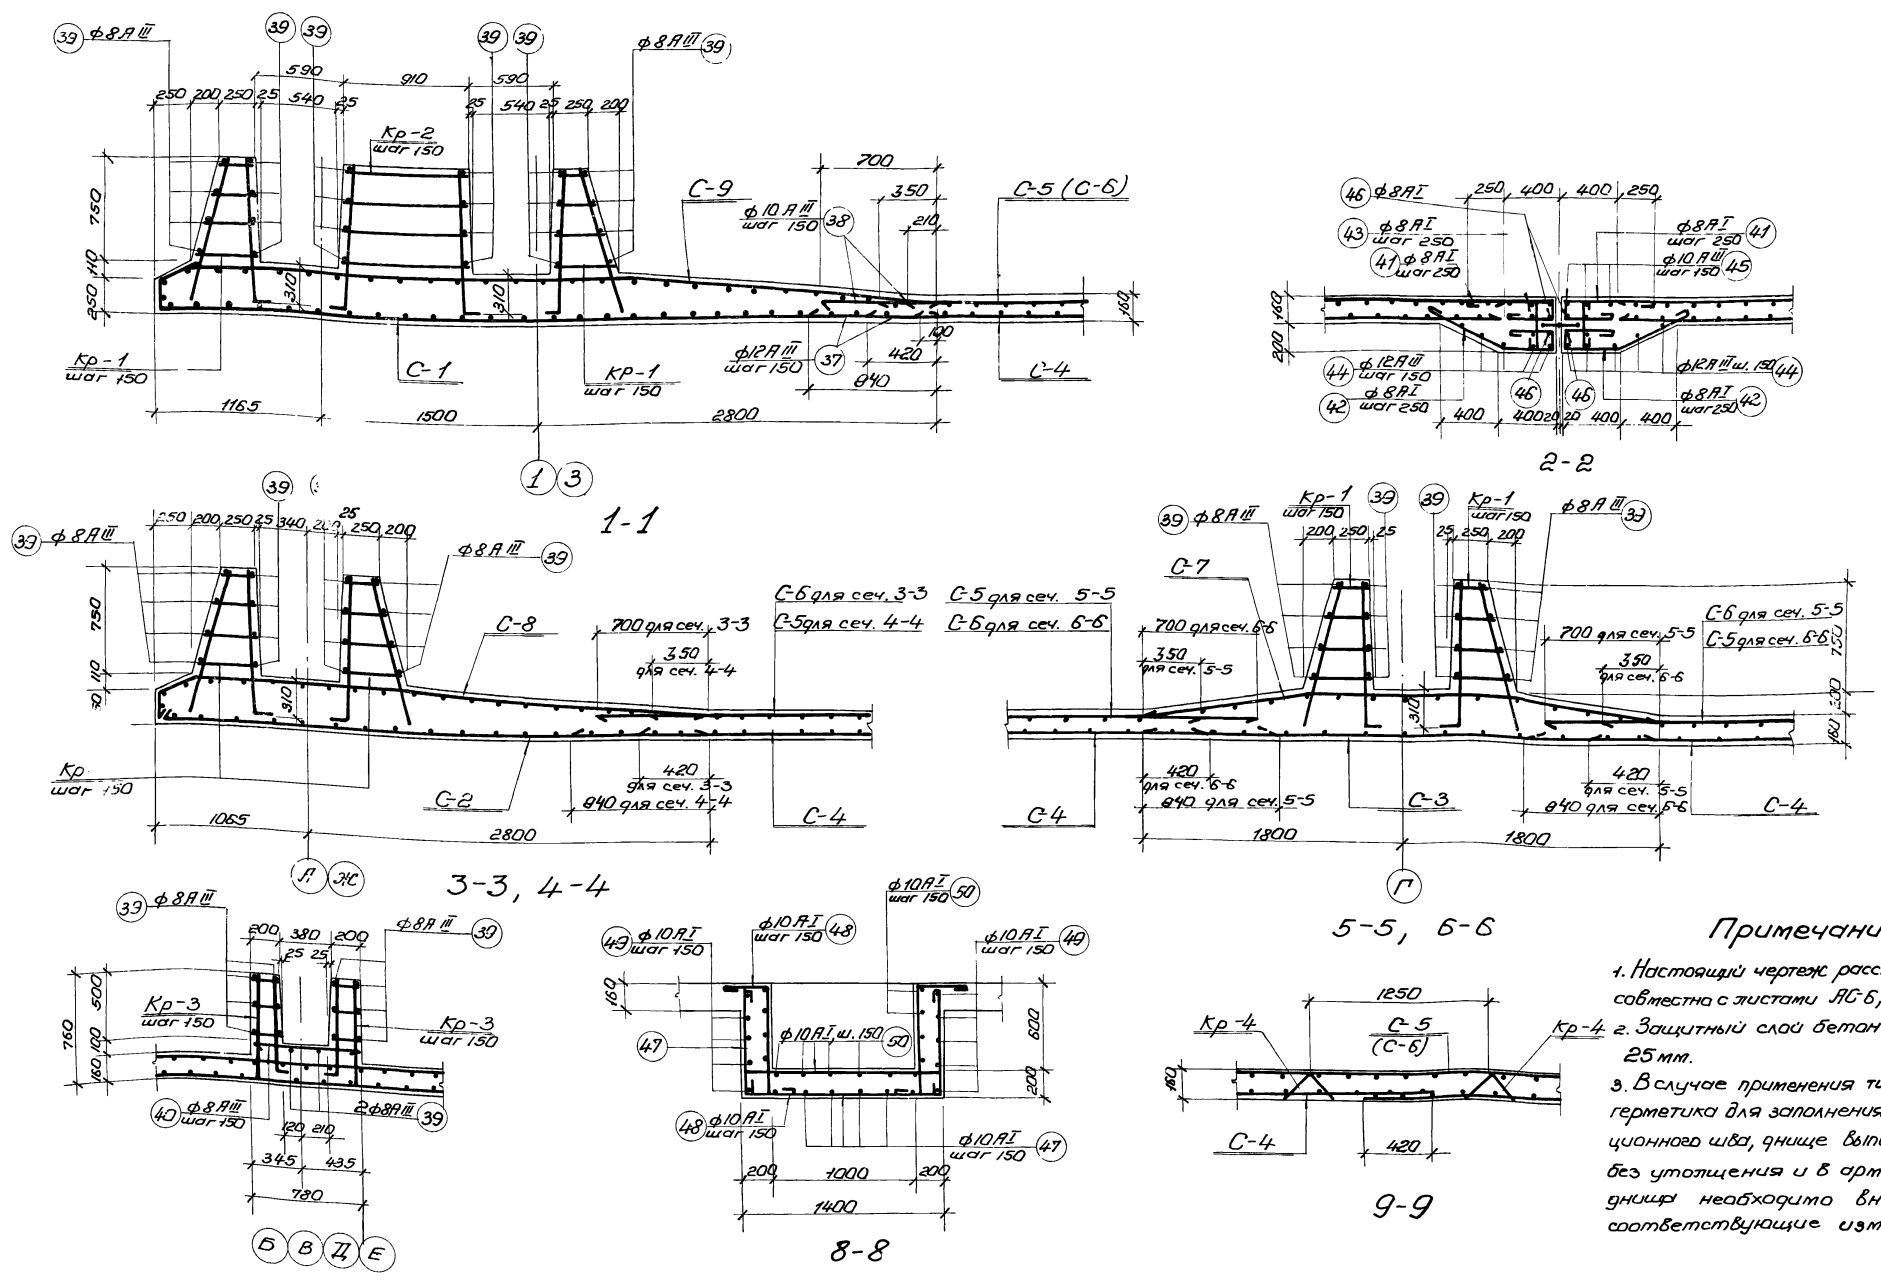 39 ф8АIII
39 39
39 39
ф8АIII 39
590 910 590
250 200 250 25 540 25
25 540 25 250 200
Кр-2
шаг 150
750
110
250
310
310
С-9
700
350
210
ф10АIII
шаг 150 38
С-5 (С-6)
160
100
420
840
ф12АIII
шаг 150 37
Кр-1
шаг 150
С-1
Кр-1
шаг 150
С-4
1165 1500 2800
1 3
1-1
46 ф8АI
250 400 400 250
43 ф8АI
шаг 250
41 ф8АI
шаг 250
ф8АI
шаг 250 41
ф10АIII
шаг 150 45
160
200
44 ф12АIII
шаг 150
42 ф8АI
шаг 250
46 46
ф12АIII ш. 150 44
ф8АI
шаг 250 42
400 400 20 20 400 400
2-2
39
39 ф8АIII
250 200 250 25 340 25 250 200
ф8АIII 39
750
110
310
С-8
700 для сеч. 3-3
350
для сеч. 4-4
С-6 для сеч. 3-3
С-5 для сеч. 4-4
Кр
шаг 150
С-2
420
для сеч. 3-3
840 для сеч. 4-4
С-4
1065 2800
А Ж
3-3, 4-4
С-5 для сеч. 5-5
С-6 для сеч. 6-6
39 ф8АIII
Кр-1
шаг 150
39 39
Кр-1
шаг 150
ф8АIII 39
200 250 25
25 250 200
С-7
700 для сеч. 6-6
350
для сеч. 5-5
С-6 для сеч. 5-5
С-5 для сеч. 6-6
700 для сеч. 5-5
350
для сеч. 6-6
750
200
160
310
420
для сеч. 6-6
840 для сеч. 5-5
С-4
С-3
420
для сеч. 5-5
840 для сеч. 6-6
С-4
1800 1800
Г
5-5, 6-6
39 ф8АIII
ф8АIII 39
200 380 200
25 25
760
500
100
160
Кр-3
шаг 150
Кр-3
шаг 150
40 ф8АIII
шаг 150
2ф8АIII 39
120 210
345 435
780
Б В Д Е
ф10АI
шаг 150 50
49 ф10АI
шаг 150
ф10АI
шаг 150 48
ф10АI
шаг 150 49
160
600
200
47
ф10АI, ш. 150 50
48 ф10АI
шаг 150
ф10АI
шаг 150 47
200 1000 200
1400
8-8
1250
Кр-4
С-5
(С-6)
Кр-4
160
С-4
420
9-9
Примечани
1. Настоящий чертеж расс
совместно с листами АС-6,
2. Защитный слой бетон
25 мм.
3. В случае применения ти
герметика для заполнения
ционного шва, днище выпо
без утолщения и в арм
днища необходимо вн
соответствующие изм